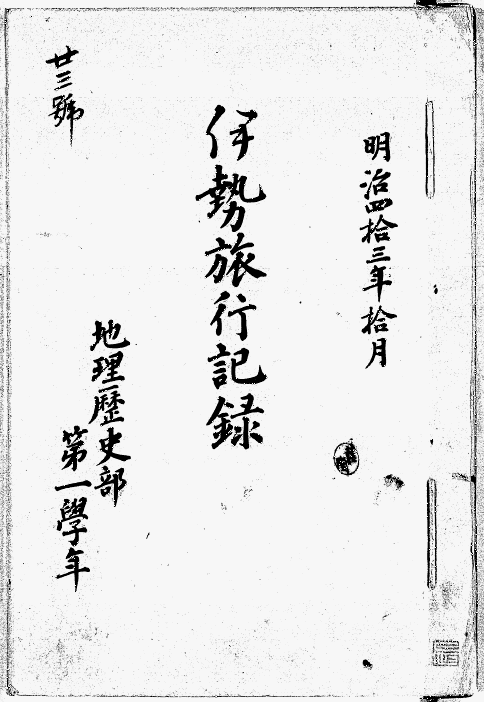 明治四拾三年拾月
伊勢旅行記録
地理歴史部
第一學年
廿三號